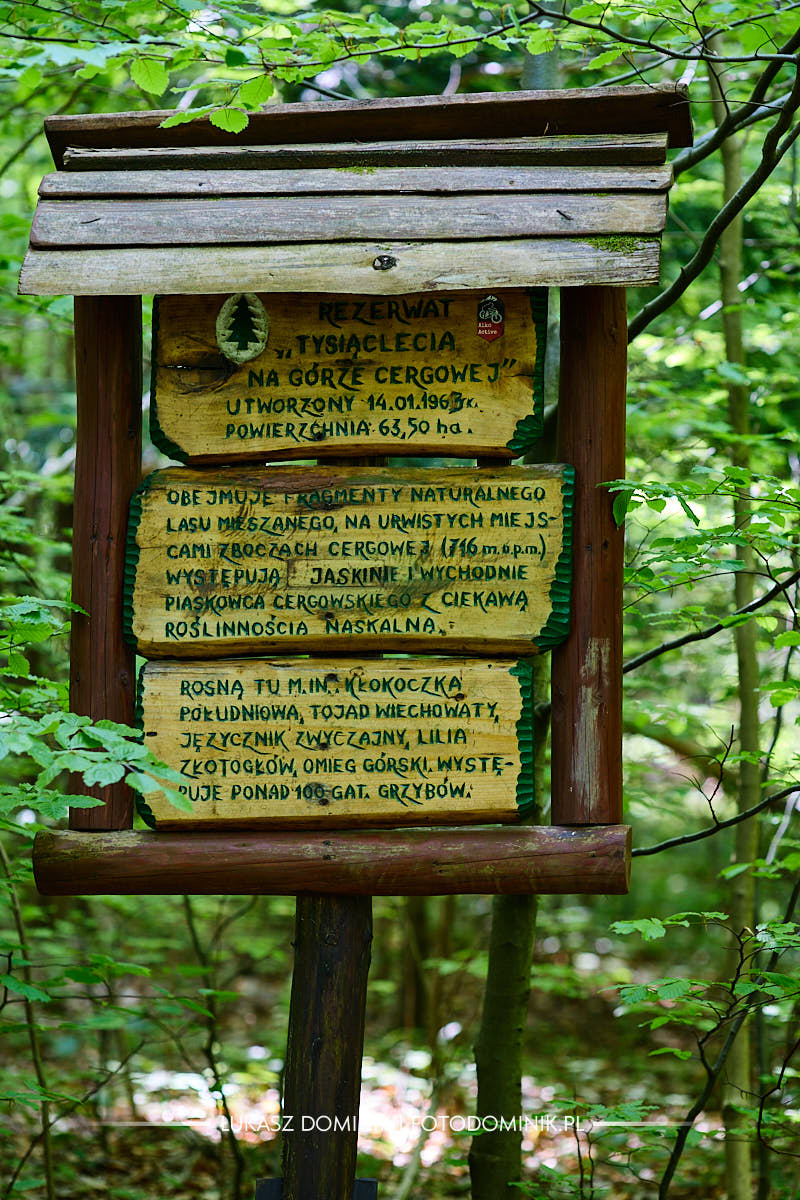 REZERWAT
Alko
Active
„TYSIĄCLECIA
NA GÓRZE CERGOWEJ”
UTWORZONY 14.01.1963r.
POWIERZCHNIA: 63,50 ha.
OBEJMUJE FRAGMENTY NATURALNEGO
LASU MIESZANEGO, NA URWISTYCH MIEJS-
CAMI ZBOCZACH CERGOWEJ (716 m.n.p.m.)
WYSTĘPUJĄ JASKINIE I WYCHODNIE
PIASKOWCA CERGOWSKIEGO Z CIEKAWĄ
ROŚLINNOŚCIĄ NASKALNĄ.
ROSNĄ TU M.IN.: KŁOKOCZKA
POŁUDNIOWA, TOJAD WIECHOWATY,
JĘZYCZNIK ZWYCZAJNY, LILIA
ZŁOTOGŁÓW, OMIEG GÓRSKI. WYSTĘ-
PUJE PONAD 100 GAT. GRZYBÓW.
ŁUKASZ FOTODOMINIK.PL